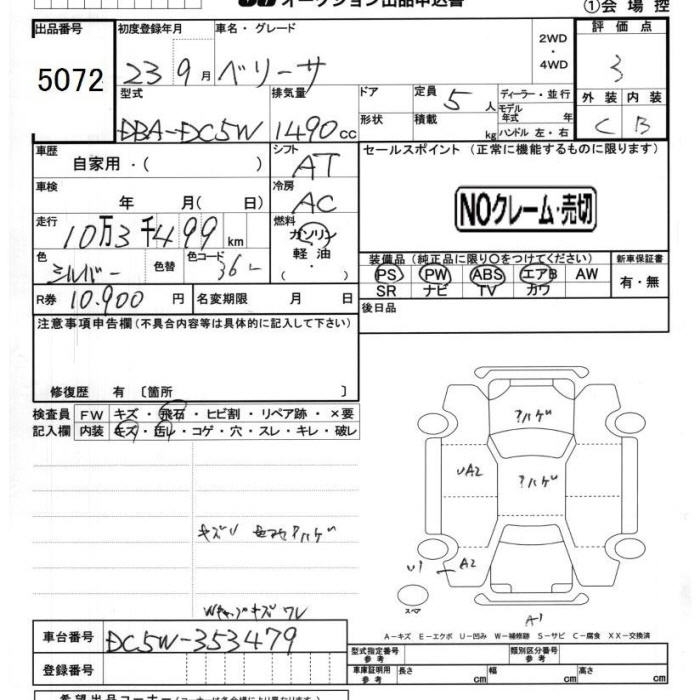 オークション出品申込書
①会場控
出品番号
5072
初度登録年月
23 9月
車名・グレード
ベリーサ
2WD
・
4WD
評価点
3
型式
DBA-DC5W
排気量
1490cc
ドア
形状
定員
5人
積載
kg
ディーラー・並行
モデル
年式 年
ハンドル 左・右
外装 内装
C B
車歴
自家用・( )
シフト
AT
セールスポイント (正常に機能するものに限ります)
車検
年 月( 日)
冷房
AC
NOクレーム・売切
走行
10万3千499km
燃料
ガソリン
軽油
・( )
色
シルバー
色替
色コード
36L
装備品(純正品に限り○をつけてください)
PS PW ABS エアB AW
SR ナビ TV カワ
新車保証書
有・無
R券 10,900円
名変期限 月 日
後日品
注意事項申告欄(不具合内容等は具体的に記入して下さい)
修復歴 有〔箇所 〕
検査員
記入欄
FW キズ・飛石・ヒビ割・リペア跡・×要
内装 キズ・汚レ・コゲ・穴・スレ・キレ・破レ
ハゲ
ハゲ
UA2
A2
U1
A1
スペア
A－キズ E－エクボ U－凹み W－補修跡 S－サビ C－腐食 XX－交換済
車台番号 DC5W-353479
登録番号
型式指定番号
参考
類別区分番号
参考
車庫証明用
参考
長さ cm
幅 cm
高さ cm
希望出品コーナー